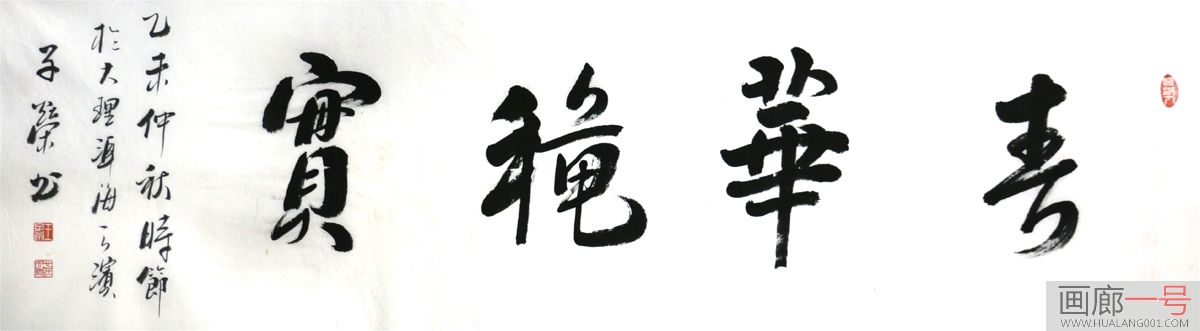 春華穐實
乙未仲秋時節
於大理洱海之濱
子榮书
画廊一号
WWW.HUALANG001.COM